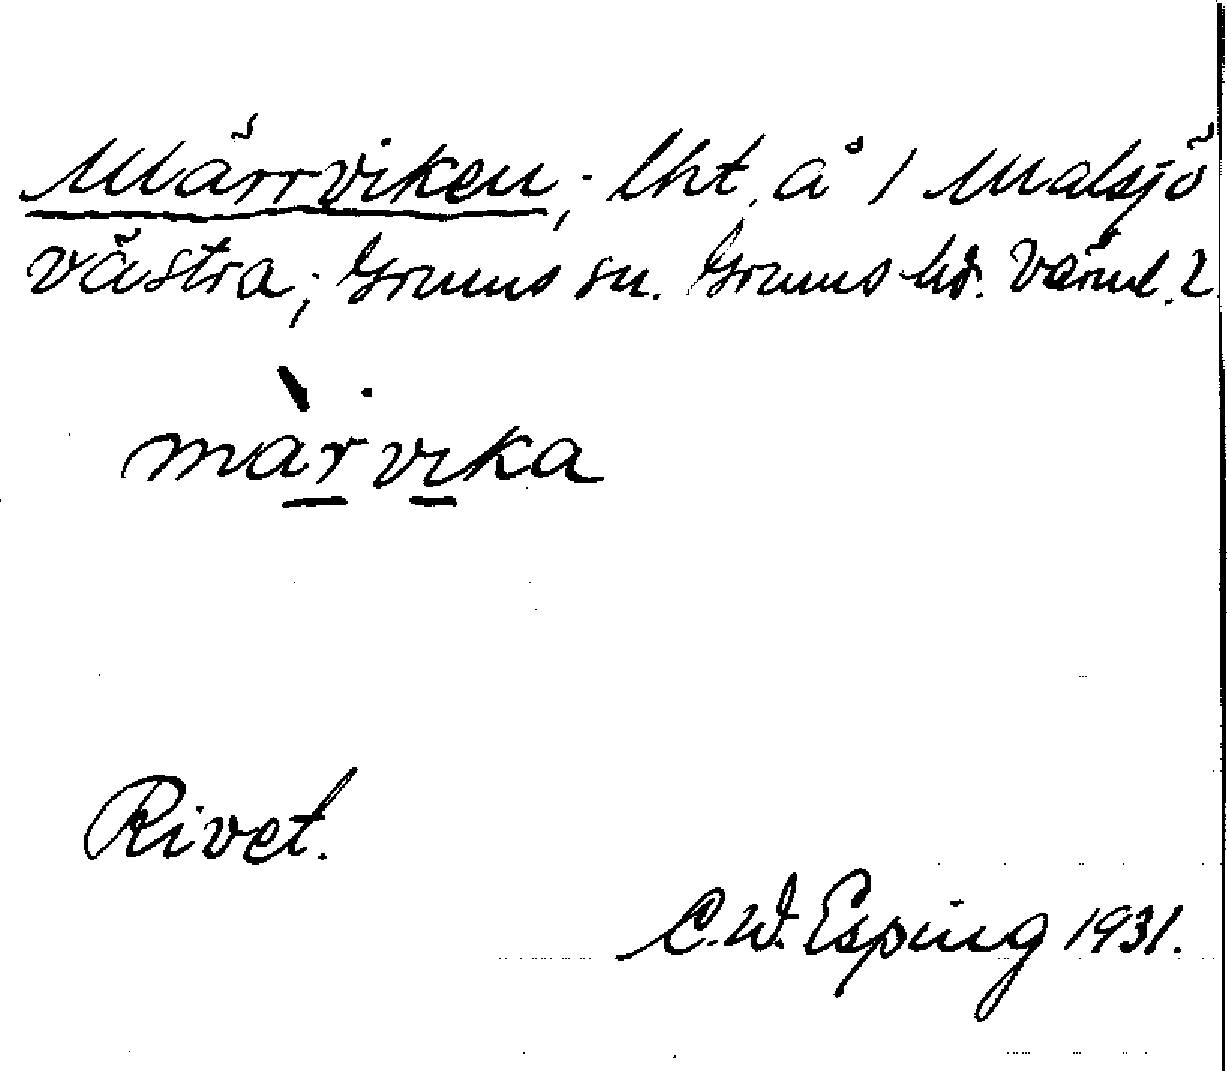 Märrviken, lht. å 1 Malsjö
västra; Grums sn. Grums hd. Värml. l.
màrvika
Rivet.
C.W. Esping 1931.